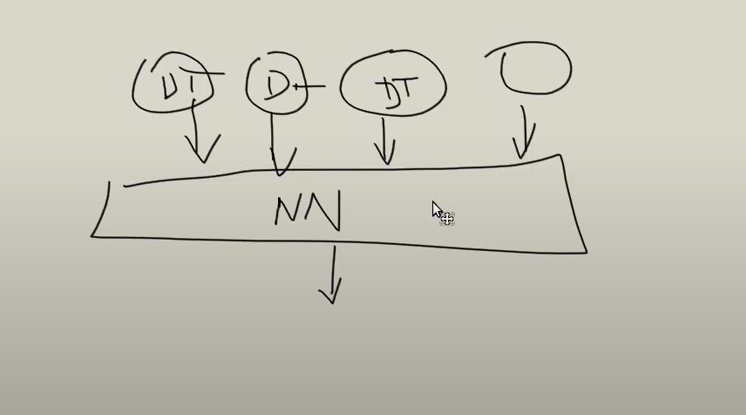 DT D DT
NN